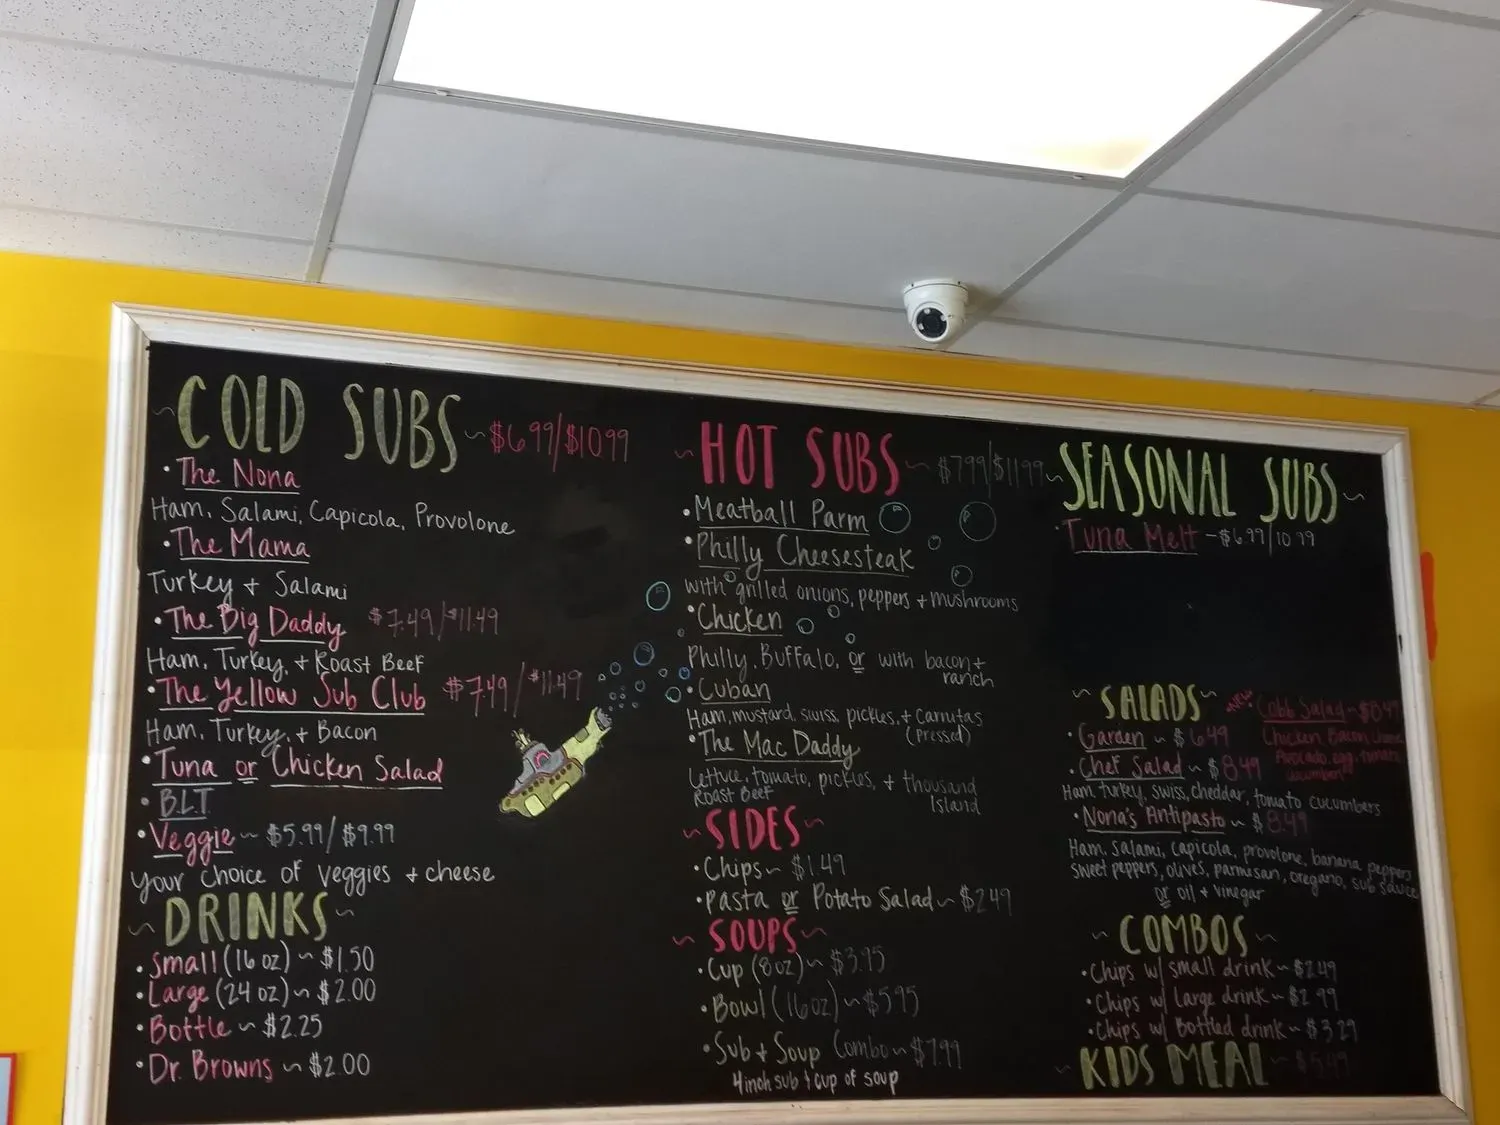 ~COLD SUBS~$6.99/$10.99
•The Nona
Ham, Salami, Capicola, Provolone
•The Mama
Turkey + Salami
•The Big Daddy $7.49/$11.49
Ham, Turkey, + Roast Beef
•The Yellow Sub Club $7.49/$11.49
Ham, Turkey, + Bacon
•Tuna or Chicken Salad
•B.L.T
•Veggie ~ $5.99/$9.99
Your choice of veggies + cheese
~DRINKS~
•Small (16 oz) ~ $1.50
•Large (24 oz) ~ $2.00
•Bottle ~ $2.25
•Dr. Browns ~ $2.00
~HOT SUBS~ $7.99/$11.99
•Meatball Parm
•Philly Cheesesteak
with grilled onions, peppers + mushrooms
•Chicken
Philly, Buffalo, or with bacon +
ranch
•Cuban
Ham, mustard, swiss, pickles, + Carnitas
(Pressed)
•The Mac Daddy
Lettuce, tomato, pickles, + thousand
Roast Beef Island
~SIDES~
•Chips ~ $1.49
•Pasta or Potato Salad ~ $2.49
~SOUPS~
•Cup (8oz) ~ $3.95
•Bowl (16oz) ~ $5.95
•Sub + Soup Combo ~ $7.99
4inch sub & cup of soup
~SEASONAL SUBS~
•Tuna Melt - $6.99/10.99
~SALADS~
NEW •Cobb Salad ~ $8.49
Chicken Bacon Cheese
Avocado, egg, tomato,
cucumber
•Garden ~ $6.49
•Chef Salad ~ $8.49
Ham, turkey, swiss, cheddar, tomato cucumbers
•Nona's Antipasto ~ $8.49
Ham, salami, capicola, provolone, banana peppers
sweet peppers, olives, parmisan, oregano, sub sauce
or oil + vinegar
~COMBOS~
•Chips w/ small drink ~ $2.49
•Chips w/ Large drink ~ $2.99
•Chips w/ Bottled drink ~ $3.29
~KIDS MEAL ~ $5.49